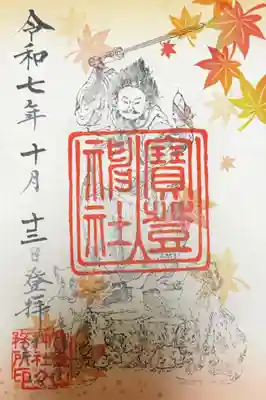 寶登山
神社
令和七年十月十三日登拝
寶登山
神社々
務所印